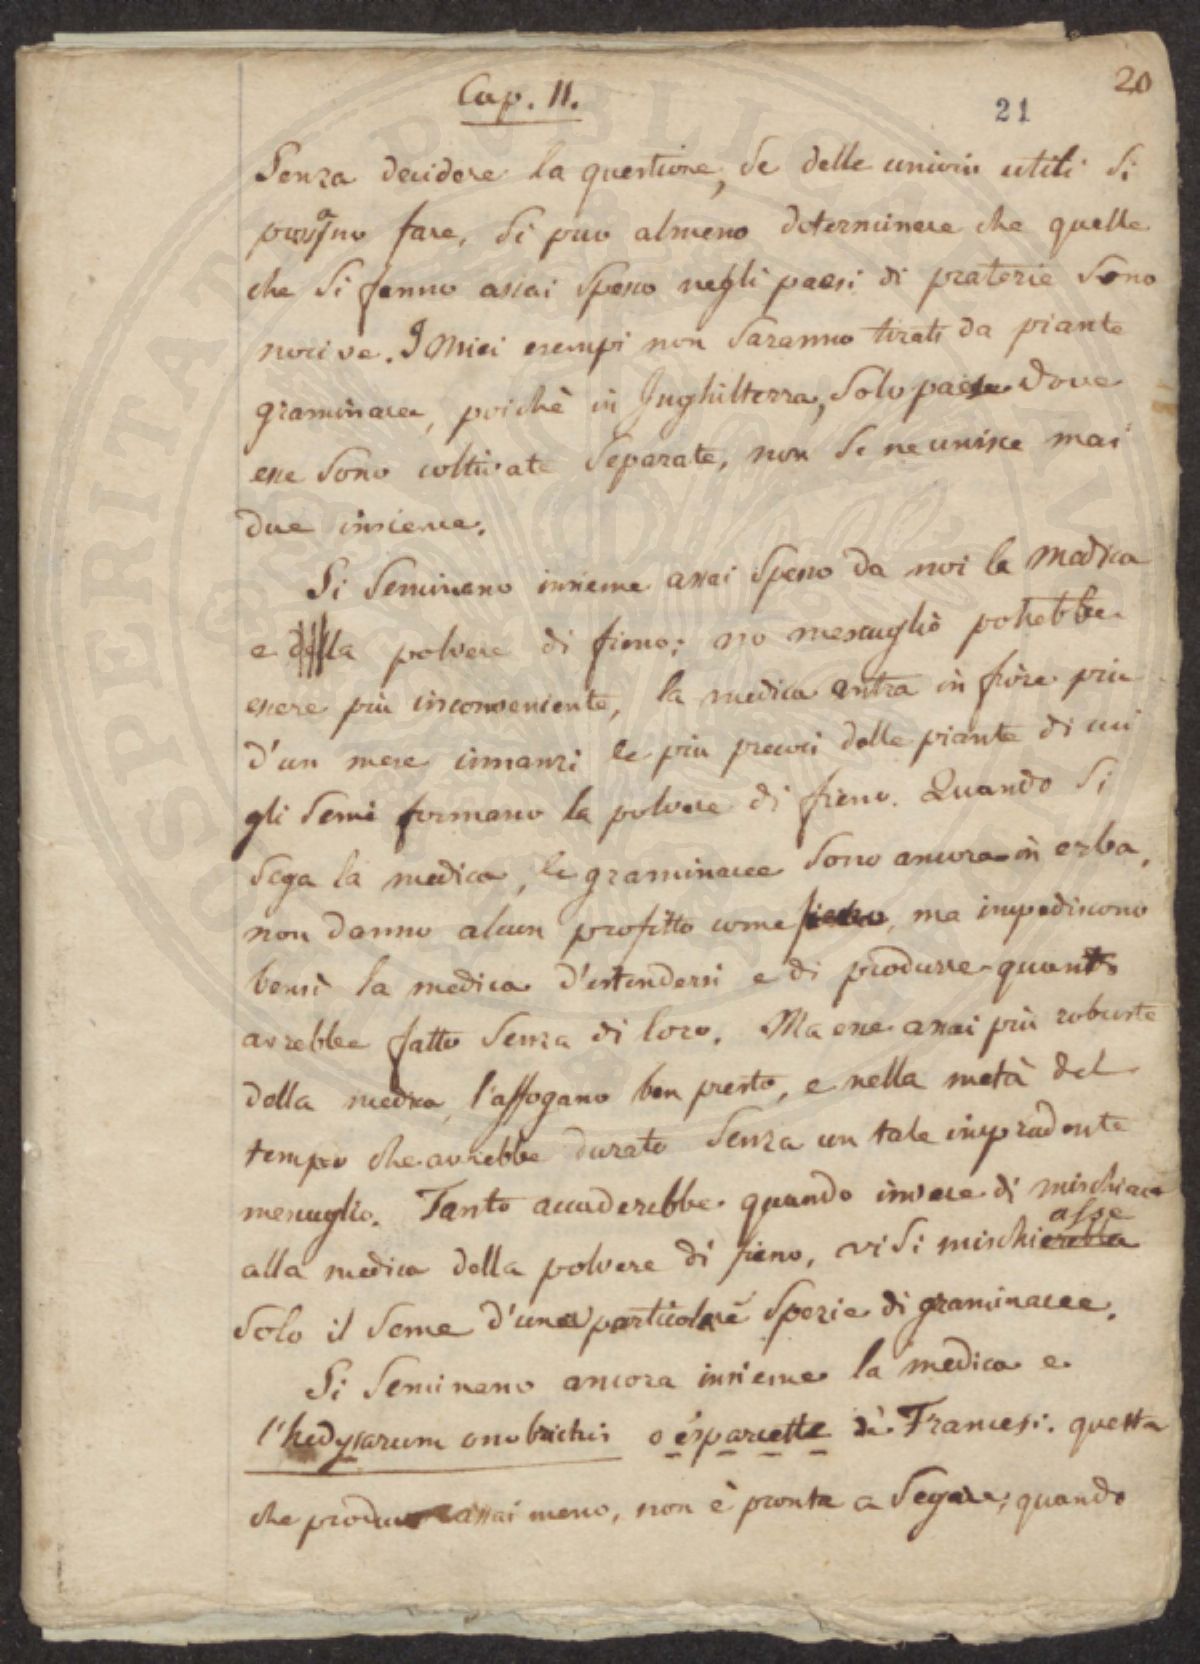 20
21
Cap. II.
Senza decidere la questione, se delle unioni utili si
possano fare, si puo almeno determinare che quelle
che si fanno assai spesso negli paesi di praterie sono
nocive. I Miei esempi non saranno tirati da piante
graminacee, poichè in Inghilterra, solo paese dove
esse sono coltivate separate, non se ne unisce mai
due insieme.
Si seminano insieme assai spesso da noi la medica
e della polvere di fieno; no mescuglio potrebbe
essere più inconveniente, la medica entra in fiore più
d'un mese innanzi le più precoci delle piante di cui
gli semi formano la polvere di fieno. Quando si
sega la medica, le graminacee sono ancora in erba,
non danno alcun profitto come fieno, ma impediscono
bensì la medica d'estendersi e di produrre quanto
avrebbe fatto senza di loro. Ma esse assai più robuste
della medica, l'affogano ben presto, e nella metà del
tempo che avrebbe durato senza un tale imprudente
mescuglio. Tanto accaderebbe quando invece di mischiare
alla medica della polvere di fieno, vi si mischierebbe asse
solo il seme d'una particolare spezie di graminacee.
Si seminano ancora insieme la medica e
l'hedysarum onobrichis o esparcette di Francesi. questa
che produce assai meno, non è pronta a segare, quando